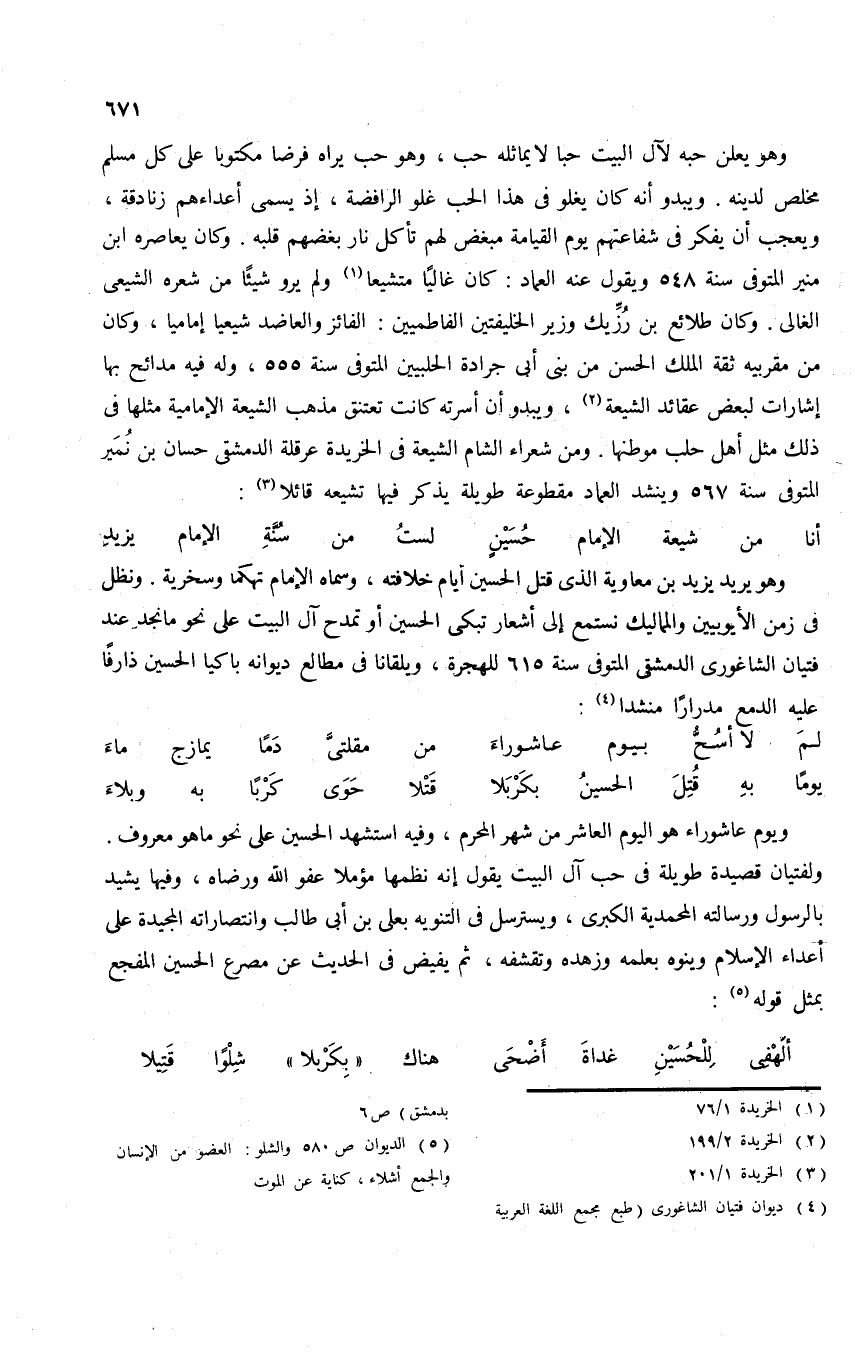 ٦٧١
وهو يعلن حبه لآل البيت حبا لايماثله حب ، وهو حب يراه فرضا مكتوبا على كل مسلم
مخلص لدينه . ويبدو أنه كان يغلو فى هذا الحب غلو الرافضة ، إذ يسمى أعداءهم زنادقة ،
ويعجب أن يفكر فى شفاعتهم يوم القيامة مبغض لهم تأكل نار بغضهم قلبه . وكان يعاصره ابن
منير المتوفى سنة ٥٤٨ ويقول عنه العماد : كان غاليًا متشيعا(١) ولم يرو شيئًا من شعره الشيعى
الغالى . وكان طلائع بن رُزِّيك وزير الخليفتين الفاطميين : الفائز والعاضد شيعيا إماميا ، وكان
من مقربيه ثقة الملك الحسن من بنى أبى جرادة الحلبيين المتوفى سنة ٥٥٥ ، وله فيه مدائح بها
إشارات لبعض عقائد الشيعة(٢) ، ويبدو أن أسرته كانت تعتنق مذهب الشيعة الإمامية مثلها فى
ذلك مثل أهل حلب موطنها . ومن شعراء الشام الشيعة فى الخريدة عرقلة الدمشقى حسان بن نُمَير
المتوفى سنة ٥٦٧ وينشد العماد مقطوعة طويلة يذكر فيها تشيعه قائلا(٣) :
أنا من شيعة الإمام حُسَيْنٍ لستُ من سُنَّةِ الإمام يزيدِ
وهو يريد يزيد بن معاوية الذى قتل الحسين أيام خلافته ، وسماه الإمام تهكما وسخرية . ونظل
فى زمن الأيوبيين والمماليك نستمع إلى أشعار تبكى الحسين أو تمدح آل البيت على نحو مانجد عند
فتيان الشاغورى الدمشقى المتوفى سنة ٦١٥ للهجرة ، ويلقانا فى مطالع ديوانه باكيا الحسين ذارفًا
عليه الدمع مدرارًا منشدا(٤) :
لـمَ لا أسُحُّ بـيـوم عـاشـوراءَ من مقلتىَّ دَمًا يمازج ماءَ
يومًا بهِ قُتِلَ الحسينُ بكَرْبَلا قَتْلا حَوَى كَرْبًا به وبلاءَ
ويوم عاشوراء هو اليوم العاشر من شهر المحرم ، وفيه استشهد الحسين على نحو ماهو معروف .
ولفتيان قصيدة طويلة فى حب آل البيت يقول إنه نظمها مؤملا عفو الله ورضاه ، وفيها يشيد
بالرسول ورسالته المحمدية الكبرى ، ويسترسل فى التنويه بعلى بن أبى طالب وانتصاراته المجيدة على
أعداء الإسلام وينوه بعلمه وزهده وتقشفه ، ثم يفيض فى الحديث عن مصرع الحسين المفجع
بمثل قوله(٥) :
ألَهْفِى لِلْحُسَيْنِ غداةَ أَضْحَى هناك «بِكَرْبلا» شِلْوًا قَتِيلا
(١) الخريدة ٧٦/١
(٢) الخريدة ١٩٩/٢
(٣) الخريدة ٢٠١/١
(٤) ديوان فتيان الشاغورى (طبع مجمع اللغة العربية
بدمشق) ص ٦
(٥) الديوان ص ٥٨٠ والشلو : العضو من الإنسان
والجمع أشلاء ، كناية عن الموت